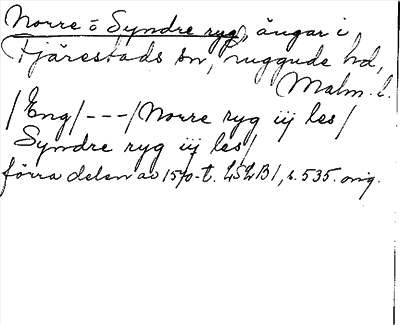 Norre o Syndre ryg, ängar i
Fjärestads sn, Luggude hd,
Malm. l.
/Eng/---/Norre ryg iij les/
Syndre ryg iij les/
förra delen av 1570-t. LSLB1, s. 535. orig.